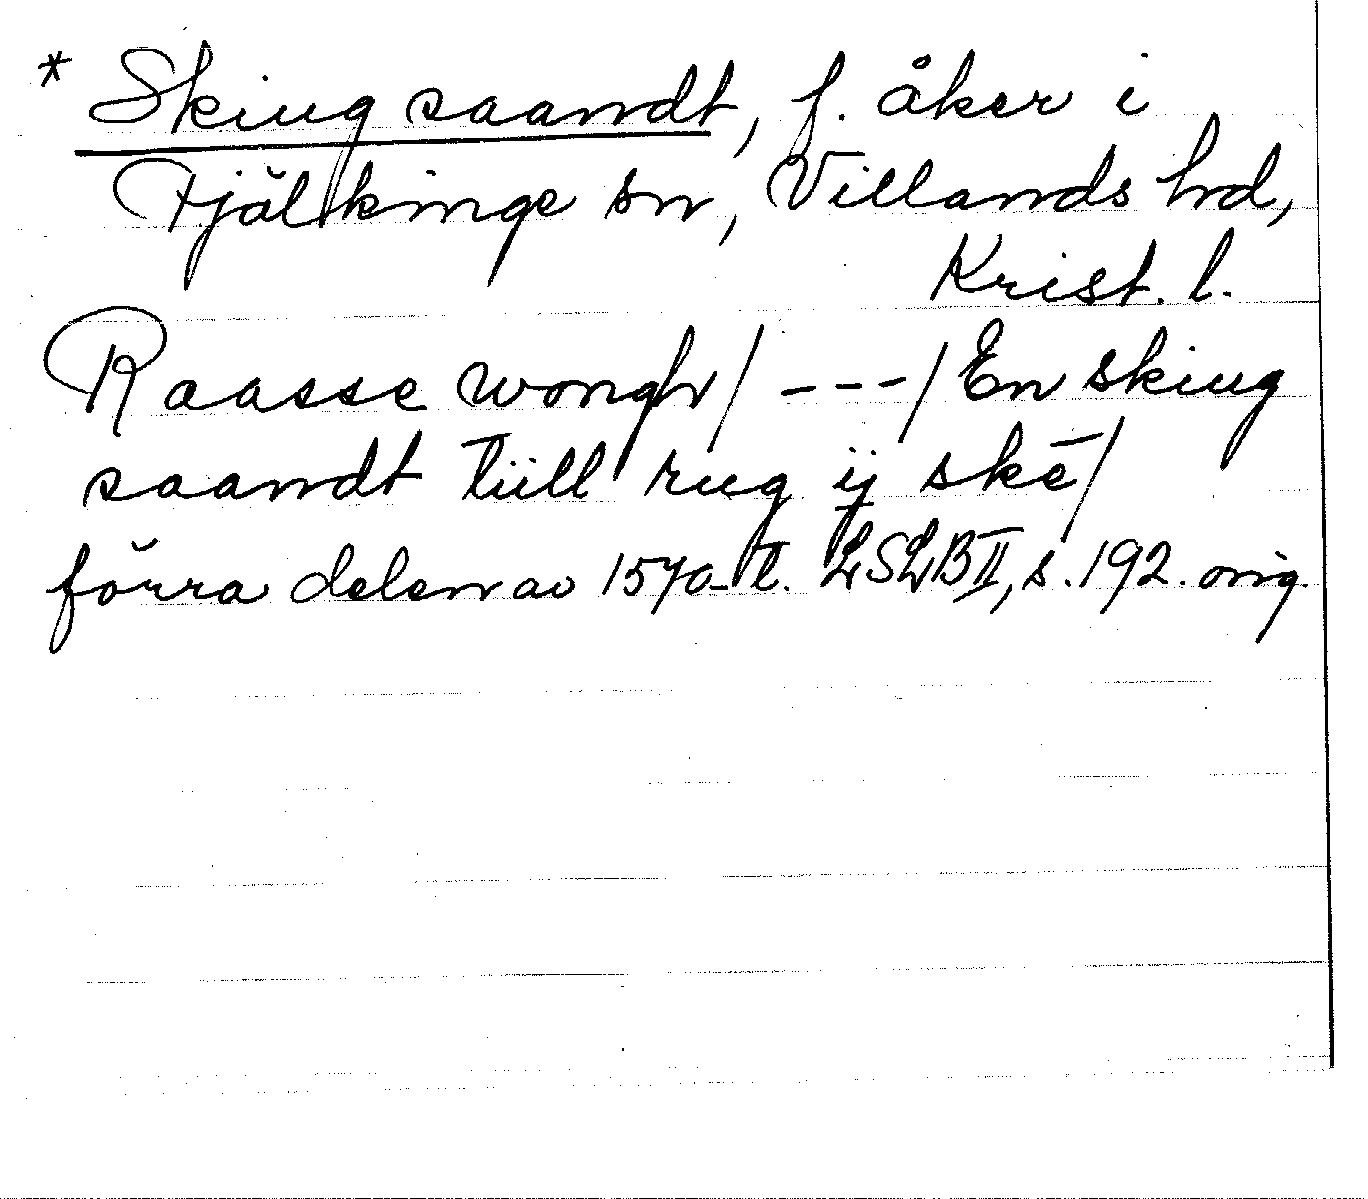 * Skiug saandt, f. åker i
Fjälkinge sn, Villands hd,
Krist. l.
Raasse wongh / - - - / En skiug
saandt tiill rug ij skē /
förra delen av 1570-t. LSLB II, s. 192. orig.